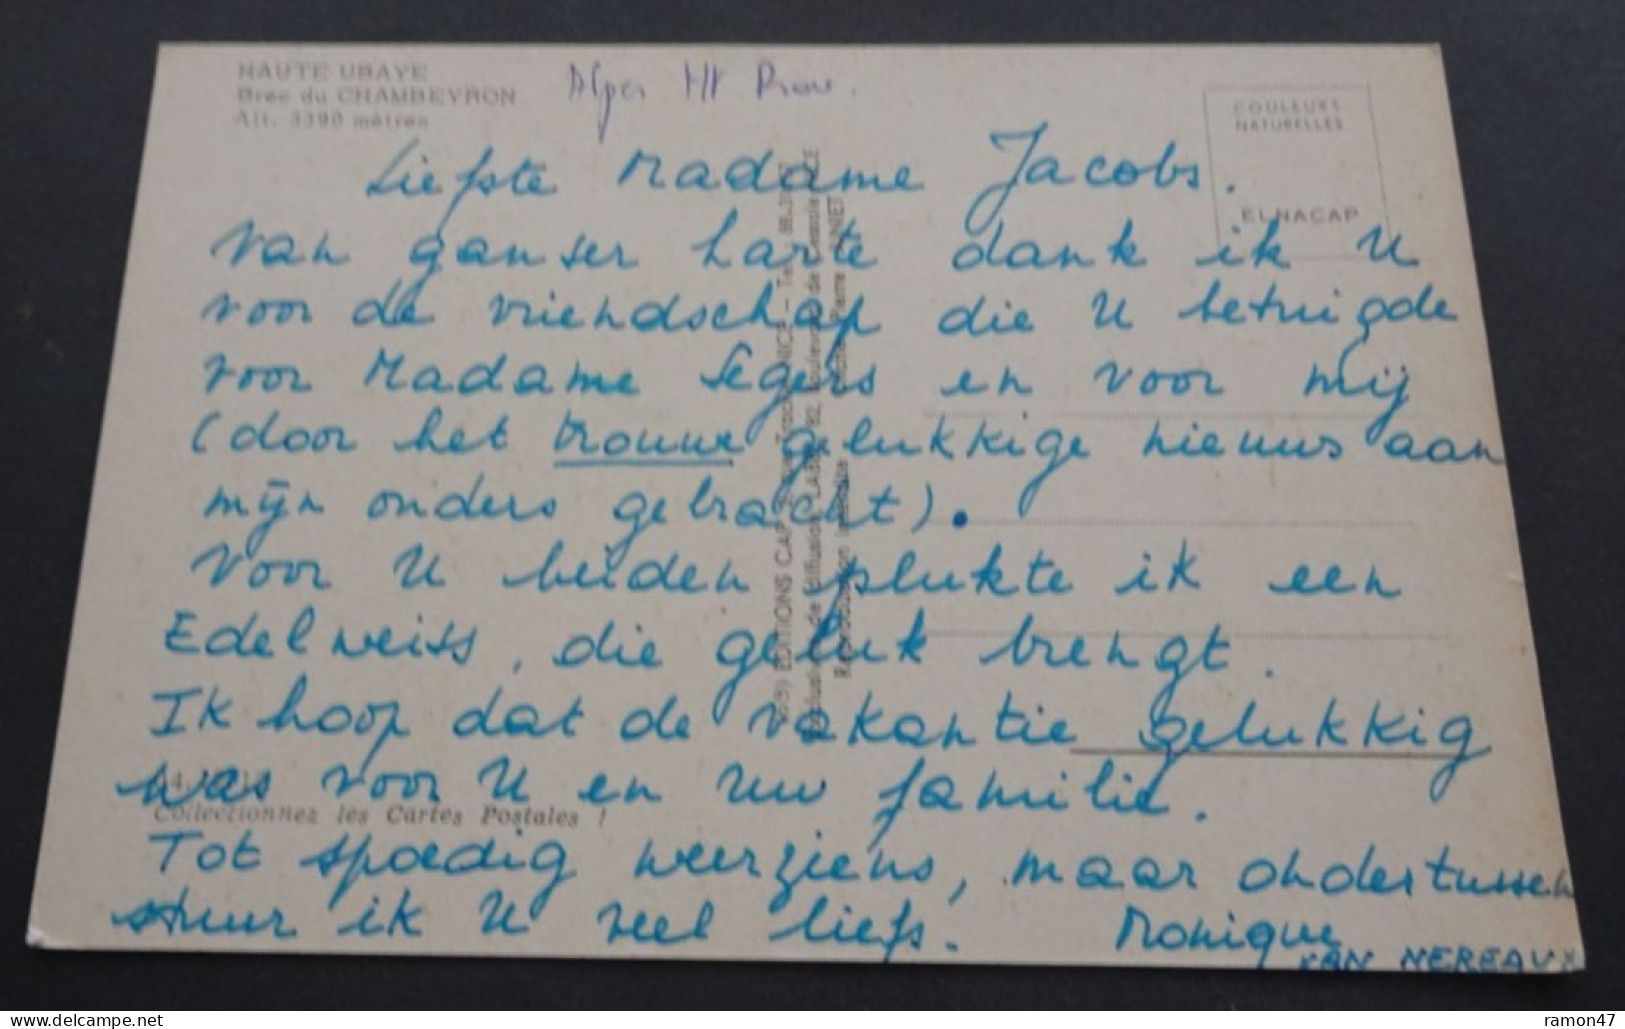 HAUTE UBAYE
Brec du CHAMBEYRON
Alt. 3390 mètres
Alpes Ht Prov.
COULEURS
NATURELLES
ELNACAP
Liefste Madame Jacobs.
Van ganser harte dank ik U
voor de vriendschap die U betuigde
voor Madame Segers en voor mij
(door het trouwe gelukkige nieuws aan
mijn ouders gebracht).
Voor U beiden plukte ik een
Edelweiss, die geluk brengt.
Ik hoop dat de vakantie gelukkig
was voor U en uw familie.
Collectionnez les Cartes Postales !
Tot spoedig weerziens, maar ondertussen
stuur ik U veel liefs. Monique
VAN MEREAUX
EDITIONS CAP
NICE
Reproduction interdite
ramon47